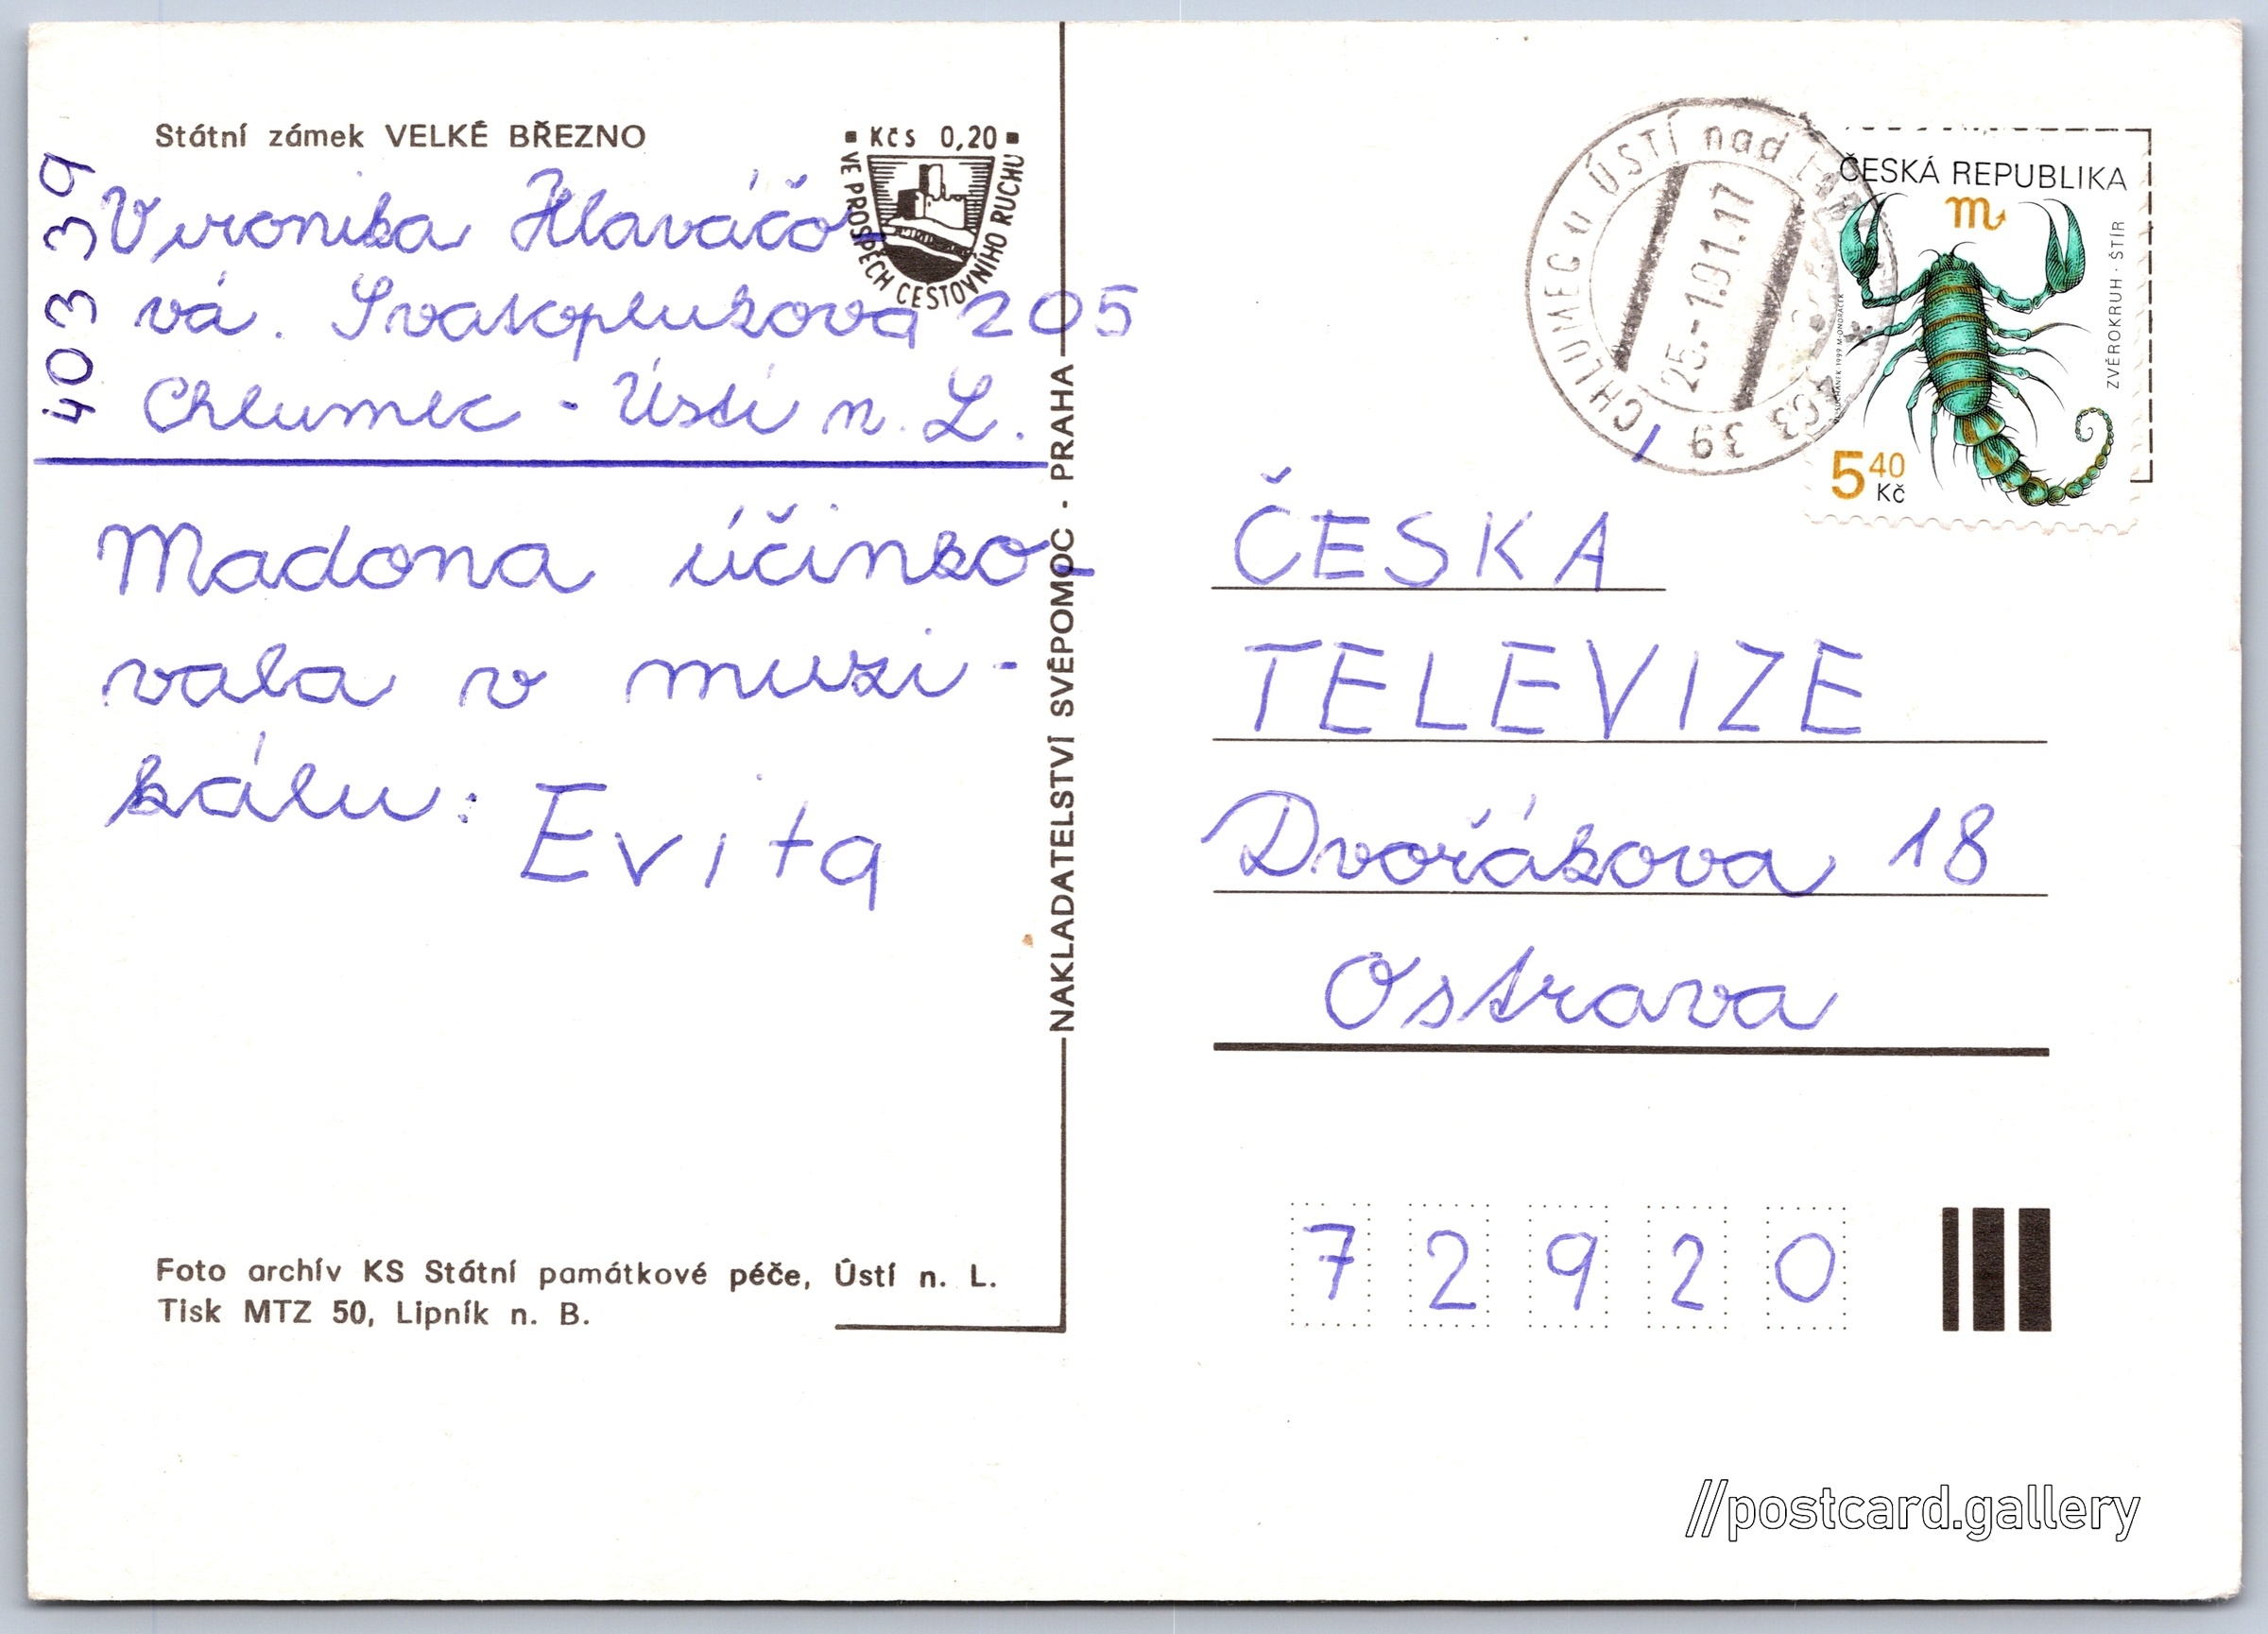 Státní zámek VELKÉ BŘEZNO
Kčs 0,20
VE PROSPĚCH CESTOVNÍHO RUCHU
403 39
Veronika Hlaváčo
vá. Svatoplukova 205
Chlumec - Ústí n. L.
Madona účinko-
vala v muzi-
kálu: Evita
Foto archív KS Státní památkové péče, Ústí n. L.
Tisk MTZ 50, Lipník n. B.
NAKLADATELSTVÍ SVÉPOMOC · PRAHA
CHLUMEC u ÚSTÍ nad
25.-1.01.17
403 39
ČESKÁ REPUBLIKA
ZVĚROKRUH · ŠTÍR
5 40 Kč
ČESKA
TELEVIZE
Dvořákova 18
Ostrava
72920
//postcard.gallery